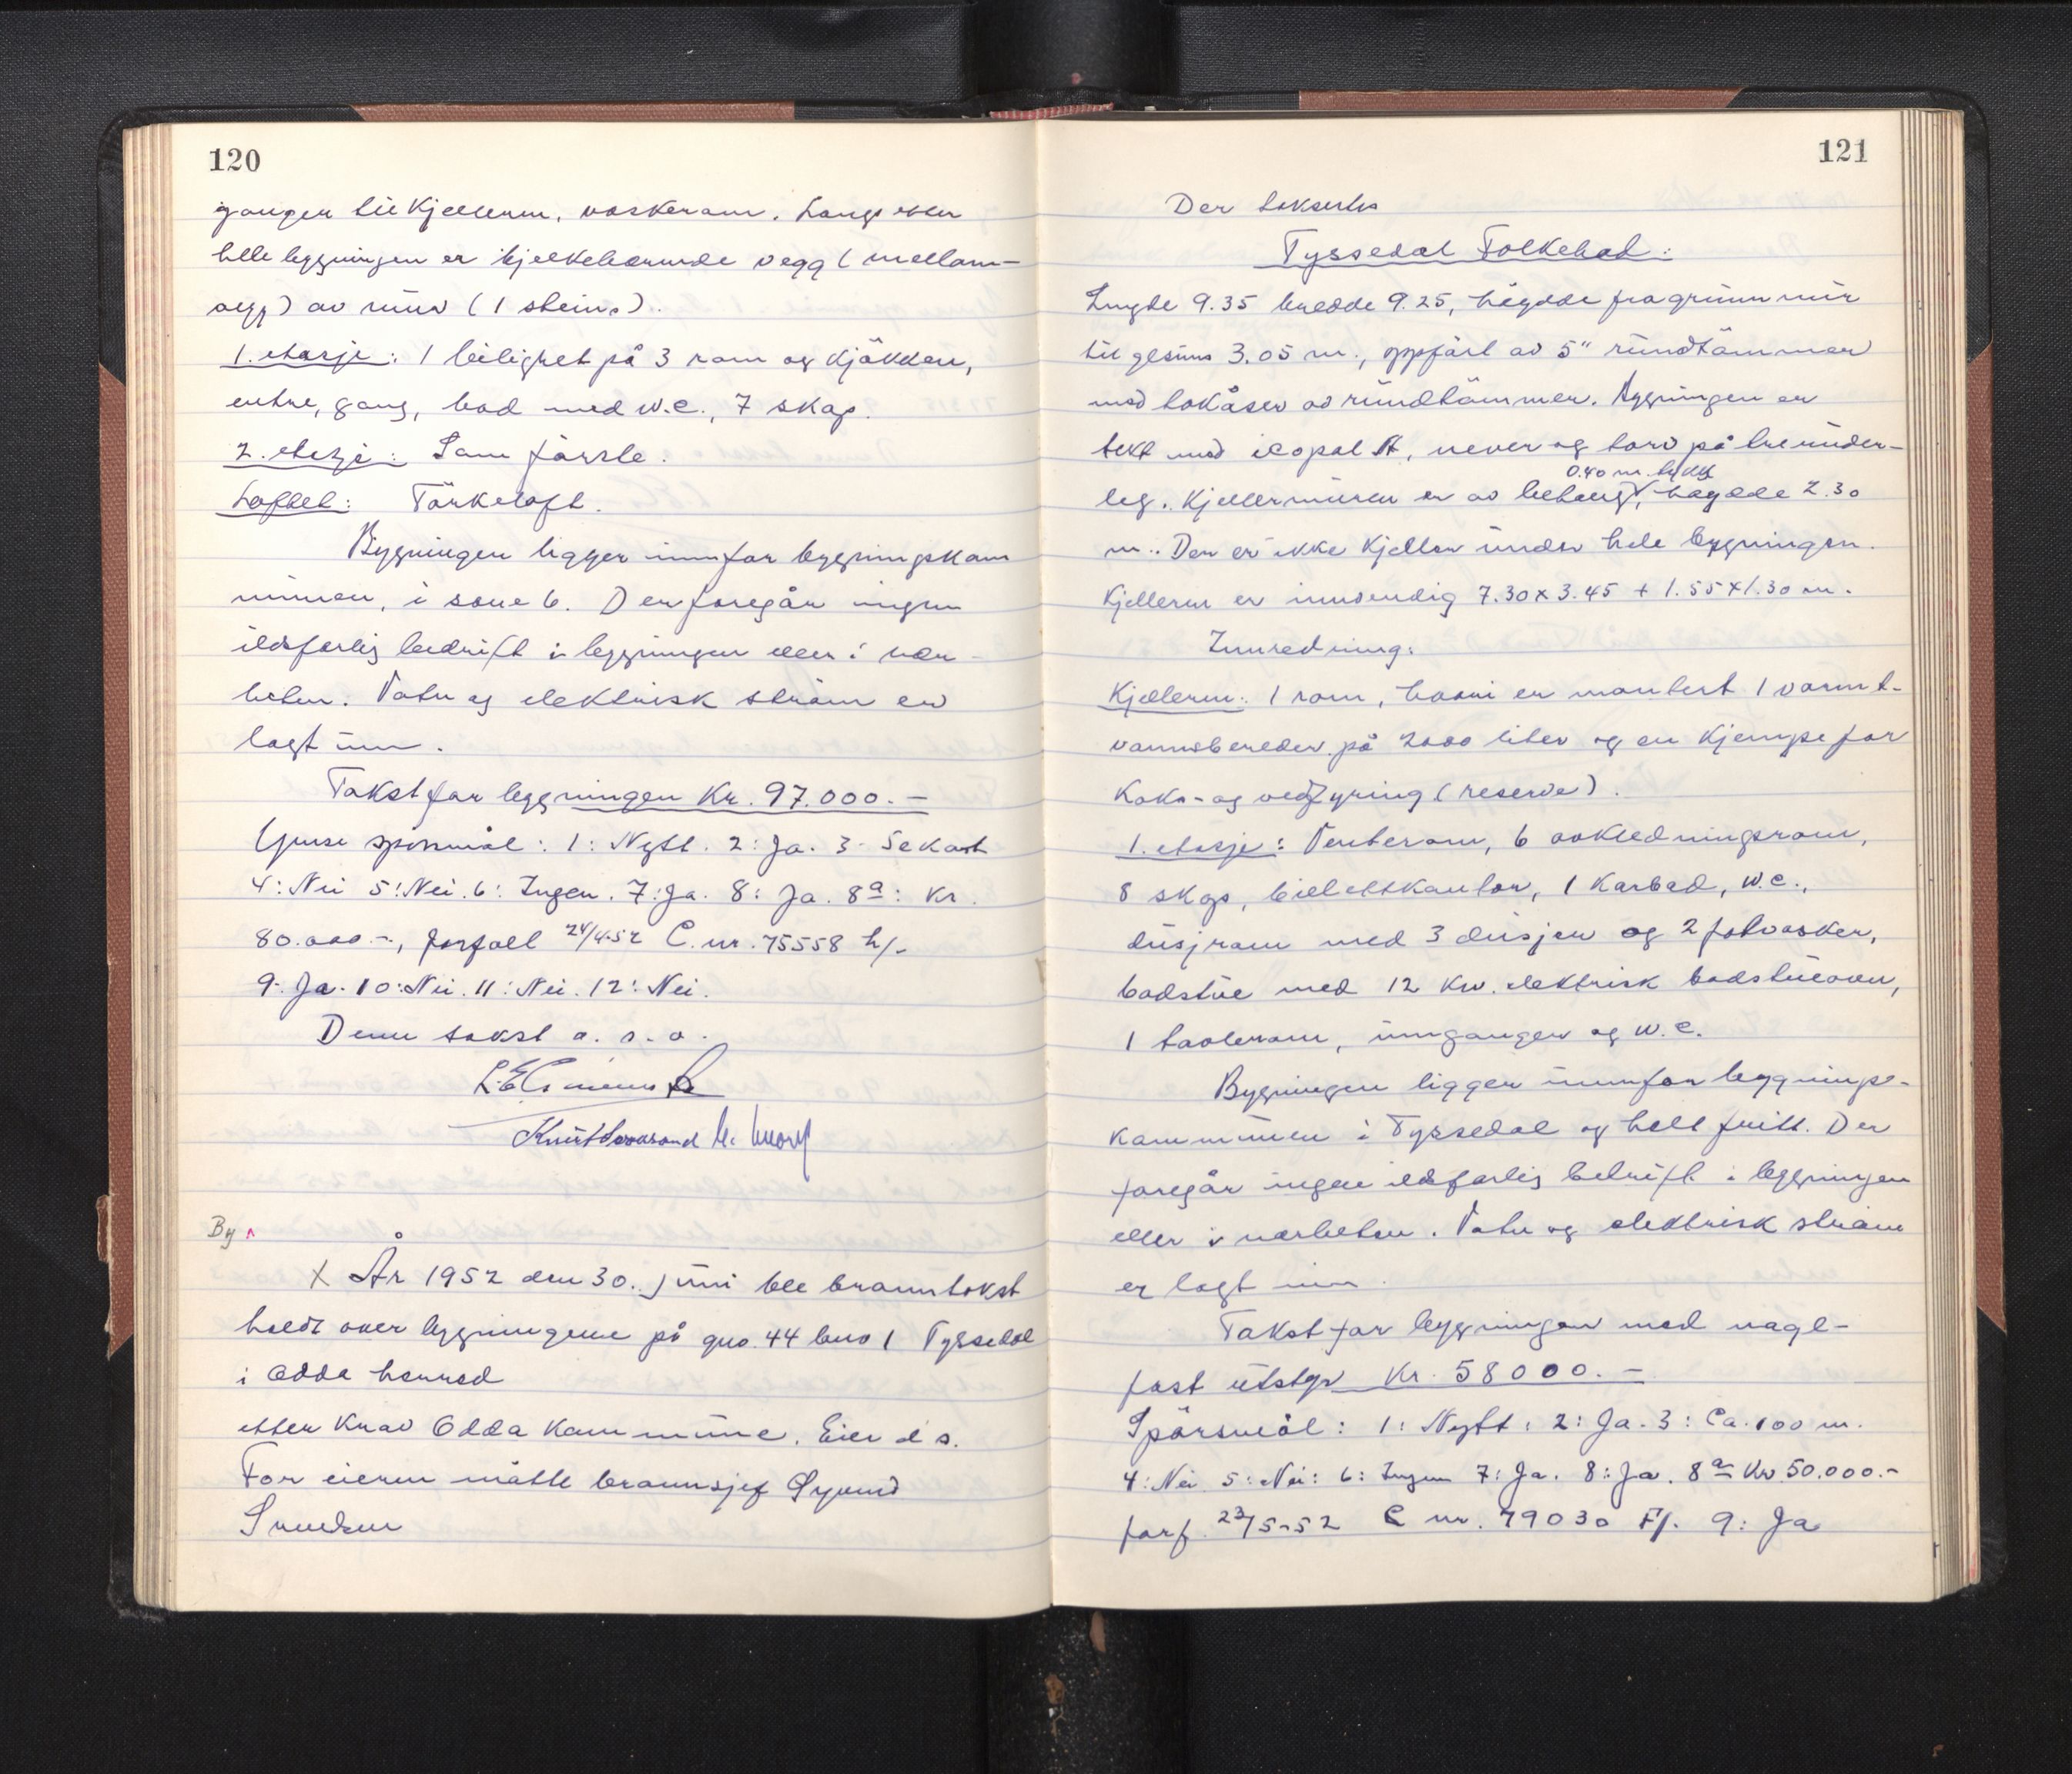 120
gangen til kjelleren, vaskerom. Langs etter
hele bygningen er bjelkebærende vegg (mellom-
vegg) av mur (1 steins).
1. etasje: 1 leilighet på 3 rom og kjökken,
entre, gang, bad med w.c., 7 skap.
2. etasje: Som förste.
Loftet: Törkeloft.
Bygningen ligger innfor bygningskom
munen, i sone 6. Der foregår ingen
ildsfarlig bedrift i bygningen eller i nær-
heten. Vatn og elektrisk ström er
lagt inn.
Takst for bygningen Kr. 97.000.-
Ymse spörsmål: 1: Nytt. 2: Ja. 3. Se kart
4: Nei 5: Nei. 6: Ingen. 7: Ja. 8: Ja. 8a: Kr.
80.000.-, forfall 24/4-52 C. nr. 75558 h/-
9: Ja. 10: Nei. 11: Nei. 12: Nei.
Denne takst a. s. o.
Knut
By
X År 1952 den 30. juni ble branntakst
holdt over bygningene på gno. 44 bno 1 Tyssedal
i Odda herred
etter krav Odda Kommune. Eier d s.
For eieren mötte brannsjef Syvind
121
Der taksertes
Tyssedal Folkebad:
Lengde 9.35 bredde 9.25, höyde fra grunnmur
til gesims 3.05 m., oppfört av 5" rundtömmer
med takåser av rundtömmer. Bygningen er
tekt med icopal A, never og torv på treunder-
0.40 m. tykk
leg. Kjellermuren er av betong, höyde 2.30
m.. Der er ikke kjeller under hele bygningen.
Kjelleren er innvendig 7.30 x 3.45 + 1.55 x 1.30 m.
Innredning:
Kjelleren: 1 rom, hvori er montert 1 varmt-
vannsbereder på 2000 liter og en kjempe for
koks- og vedfyring (reserve).
1. etasje: Venterom, 6 avkledningsrom,
8 skap, billettkontor, 1 karbad, w.c.,
dusjrom med 3 dusjer og 2 fotvasker,
badstue med 12 kw. elektrisk badstueovn,
1 tavlerom, innganger og w.c.
Bygningen ligger innfor bygnings-
kommunen i Tyssedal og helt fritt. Der
foregår ingen ildsfarlig bedrift i bygningen
eller i nærheten. Vatn og elektrisk ström
er lagt inn.
Takst for bygningen med nagl-
fast utstyr Kr. 58000.-
Spörsmål: 1: Nytt: 2: Ja. 3: Ca. 100 m.
4: Nei 5: Nei: 6: Ingen 7: Ja. 8: Ja. 8a Kr. 50.000.-
forf. 23/5-52 C nr. 79030 F/. 9: Ja